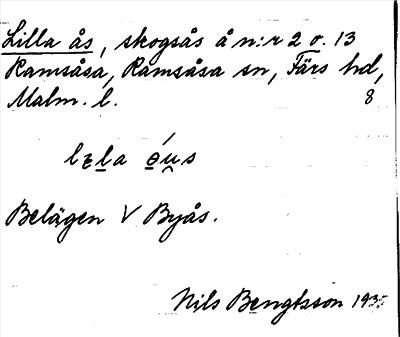 Lilla ås, skogsås å n:r 2 o. 13
Ramsåsa, Ramsåsa sn, Färs hd,
Malm. l. 8
Belägen V Byås.
Nils Bengtsson